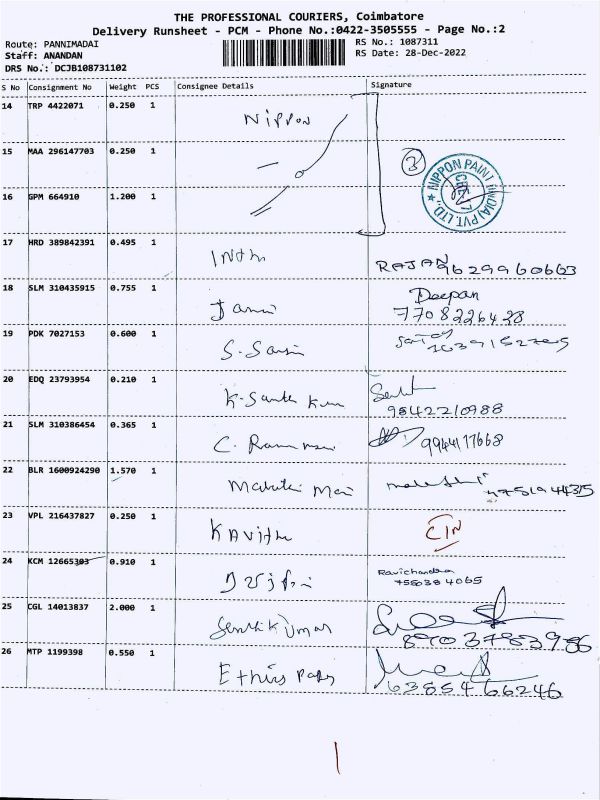 THE PROFESSIONAL COURIERS, Coimbatore
Delivery Runsheet - PCM - Phone No.:0422-3505555 - Page No.:2
Route: PANNIMADAI
RS No.: 1087311
Staff: ANANDAN
RS Date: 28-Dec-2022
DRS No.: DCJB108731102
S No Consignment No Weight PCS Consignee Details Signature
14 TRP 4422071 0.250 1 Nippon
15 MAA 296147703 0.250 1 3
NIPPON PAINT (INDIA) PVT. LTD.,
16 GPM 664910 1.200 1
17 HRD 389842391 0.495 1 RAJAN 9629960663
18 SLM 310435915 0.755 1 Deepan
7708226428
19 PDK 7027153 0.600 1
20 EDQ 23793954 0.210 1
9842210988
21 SLM 310386454 0.365 1 9944117668
22 BLR 1600924290 1.570 1
23 VPL 216437827 0.250 1 Kavitha
24 KCM 12665303 0.910 1 Ravichandra
25 CGL 14013837 2.000 1 Senthilkumar
8903783986
26 MTP 1199398 0.550 1
6385466246